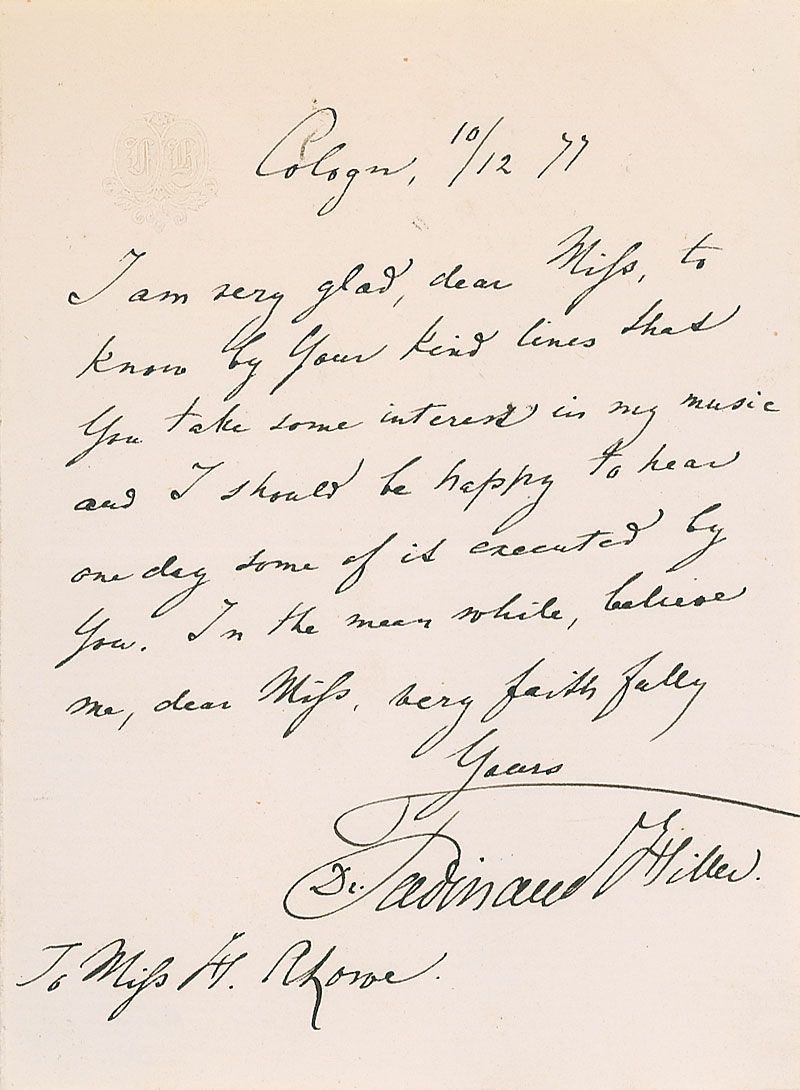 Cologn, 10/12 77
I am very glad, dear Miss, to
know by Your kind lines that
You take some interest in my music
and I should be happy to hear
one day some of it executed by
You. In the mean while, believe
me, dear Miss, very faithfully
Yours
Dr. Ferdinand Hiller.
To Miss H.